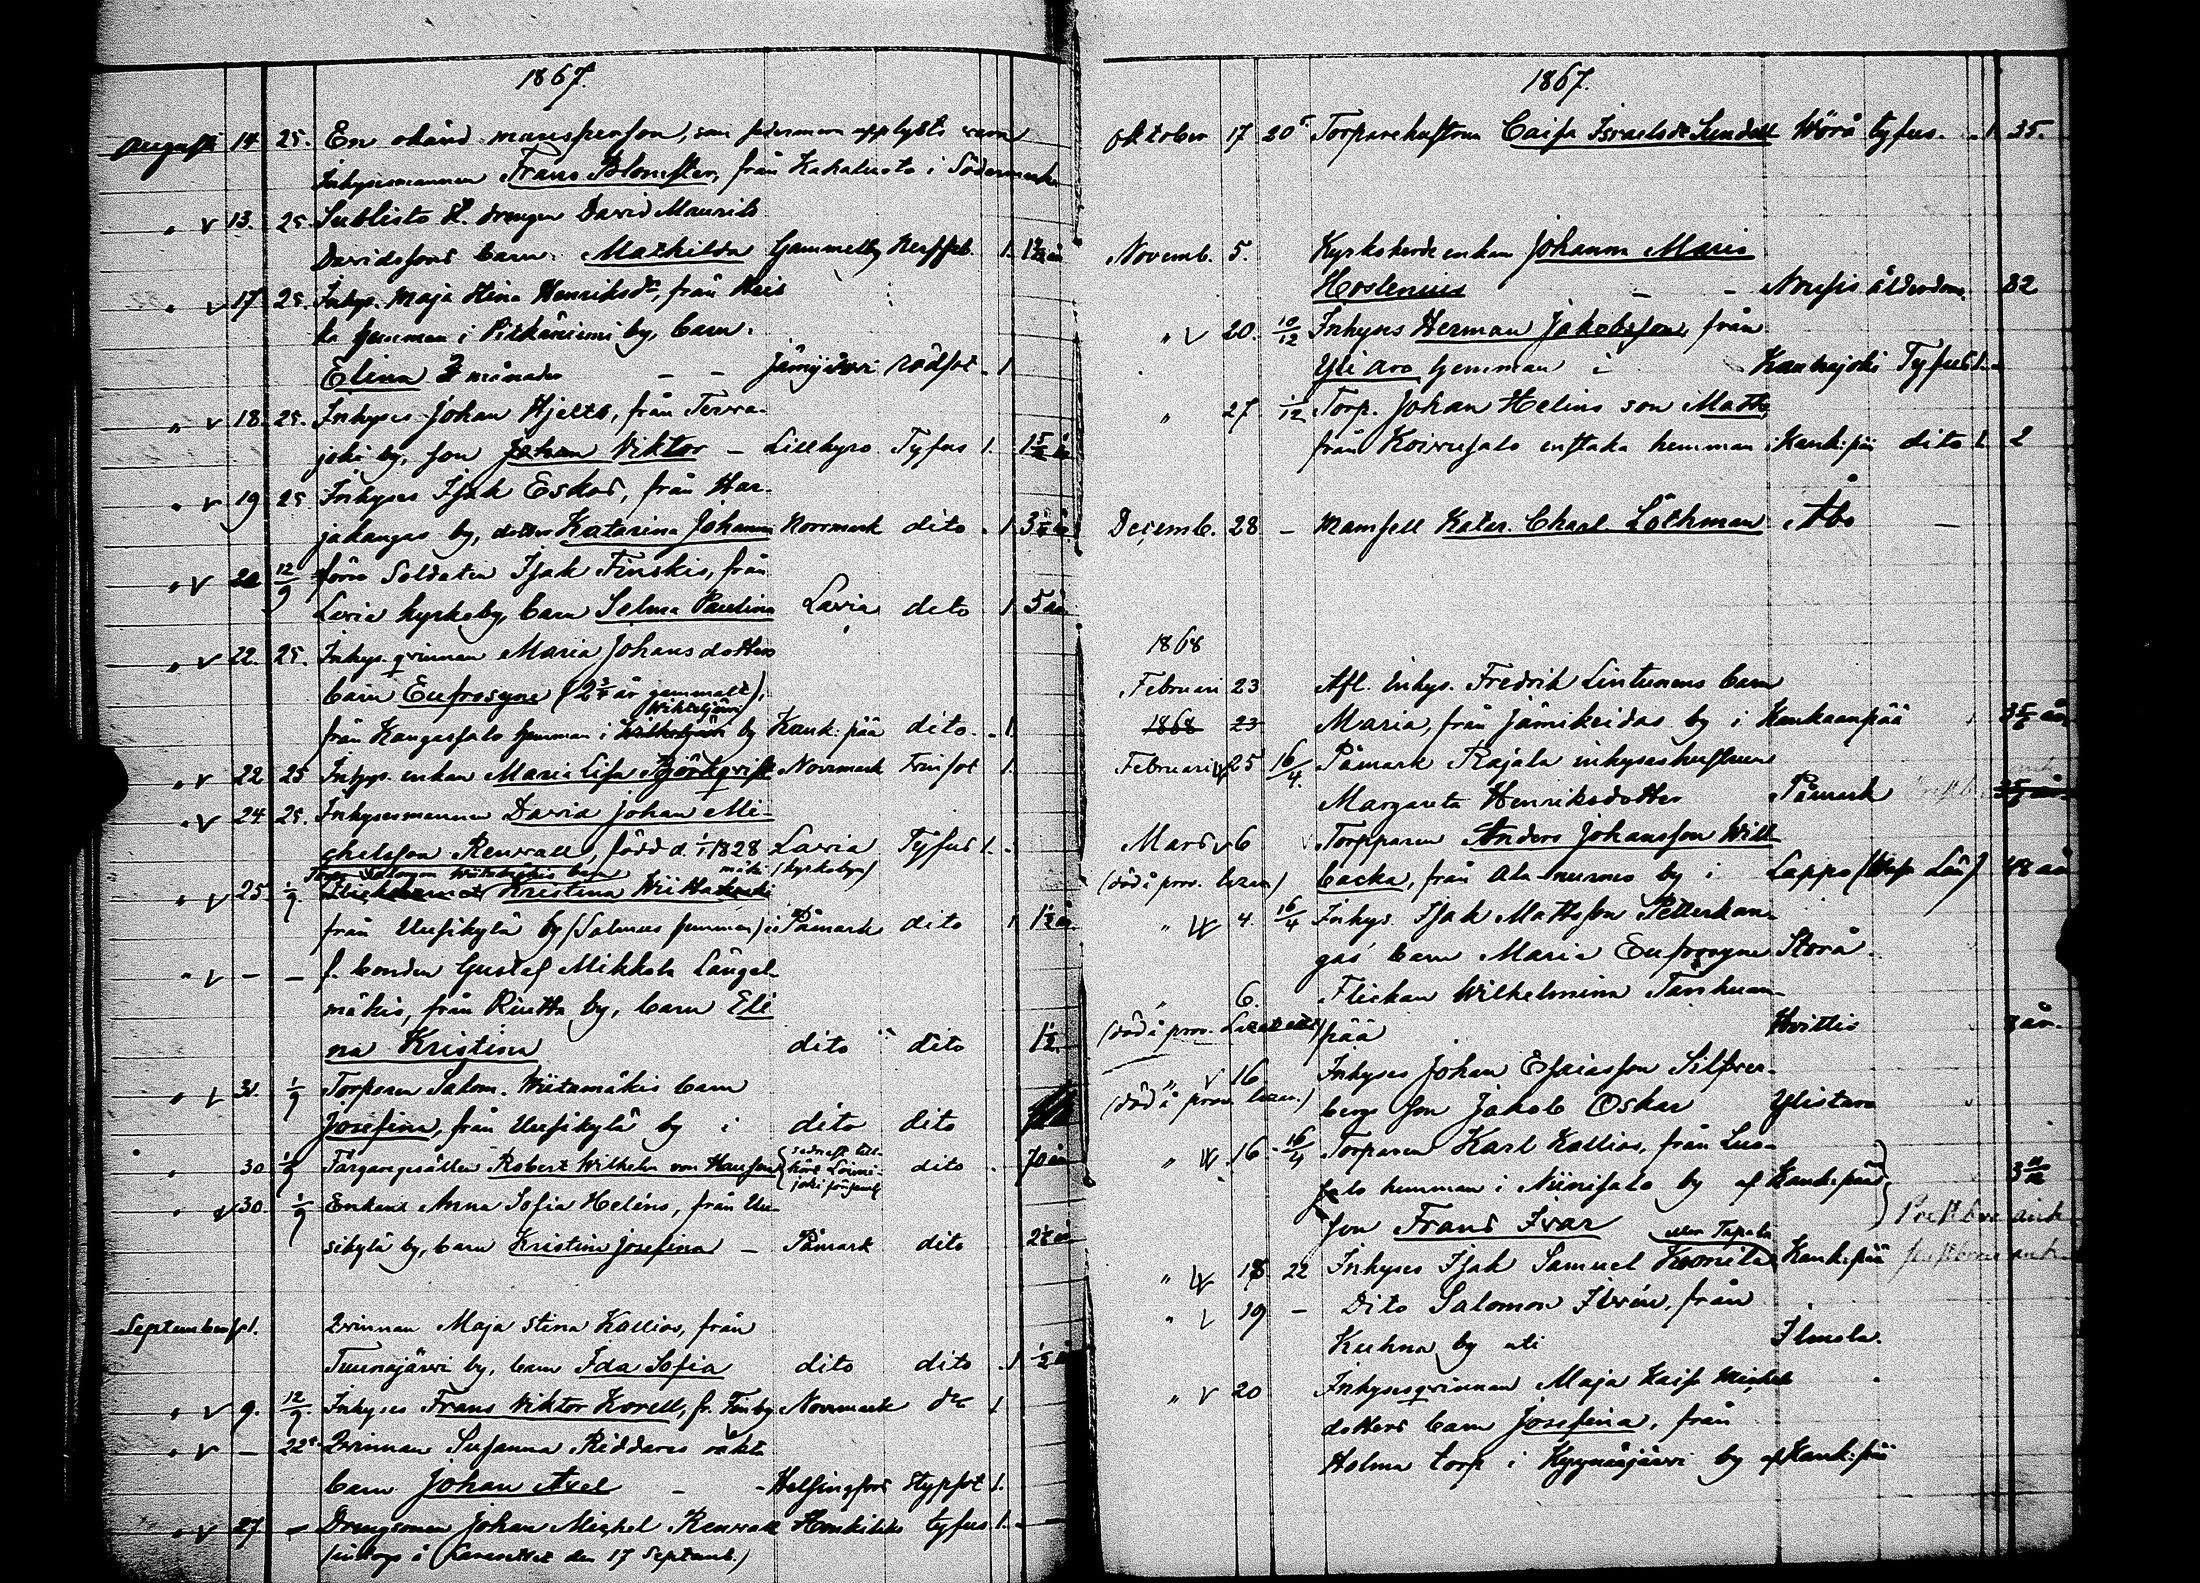 1867.
Augusti 14 25. En okänd mansperson, som sedermera upplysts vara
Inhysesmannen Frans Blomster, från Kahaluoto i Södermark
" v 13. 25. Sublisto H. drengen David Maurits
Davidssons barn Mathilda Gammelby 1.
" v 17 25. Inhys. Maja Stina Henriksdr, från Heis
ka hemman i Pitkäniemi by, barn
Elina 2 månader – – Jämijärvi rödsot 1
" v 18. 25. Inhyses Johan Hjelts, från Terva-
joki by, son Johan Viktor – Lillkyro Tyfus 1.
" v 19 25 Inhyses Isak Eskos, från Har-
jakangas by, dotter Katarina Johanna Norrmark dito 1.
" v 20 12/9 förre Soldaten Isak Finskis, från
Lavia kyrkoby, barn Selma Paulina Lavia dito 1 5 år
" v 22. 25. Inhys. qvinnan Maria Johansdotters
barn Eufrosyne (2 3/4 år gammalt),
från Kangassalo hemman i by Kank:pää dito 1
" v 22 25 Inhys. enkan Maria Lisa Björkqvist Norrmark 1.
" v 24. 25. Inhysesmannen David Johan Mi-
chelsson Renvall, född d. 1/1 1828 Lavia Tyfus 1.
(kyrkobyn)
Torp. Salomon Wiitamäkis barn
" v 25 1/9 Kristina
från Uusikylä by (Salmus hemman) i Påmark dito 1 1½ år
" v – – f. bonden Gustaf Mikkola Längel-
mäkis, från Riutta by, barn Eli
na Kristina dito dito 1½
" v 31. 1/9 Torparen Salom. Wiitamäkis barn
Josefina, från Uusikylä by i dito dito
" 30 1/9 Färgaregesällen Robert Wilhelm von Hausen dito 70 år
" v 30 1/9 Enkans Anna Sofia Heléns, från Uu-
sikylä by, barn Kristina Josefina – Påmark dito
September 1. Qvinnan Maja Stina Kallios, från
Tuunajärvi by, barn Ida Sofia dito dito 1 ½ år
" v 9. 12/9. Inhyses Frans Viktor Korell, fr. Finby Norrmark do 1
" v – 22 Qvinnan Susanna Riddares oäkta
barn Johan Axel – – Helsingfors 1.
" v 27. – Drengsonen Johan Mickel Renvall Honkilaks tyfus 1. –
(intogs å Lazarettet den 17 Septemb.)
1867.
Oktober 17 20 Torparehustrun Caisa Israelsdr Sundell Wörå tyfus 1 35.
Novemb. 5. Kyrkoherde enkan Johanna Maria
Hoslenius – – Nousis ålderdom 82
" v 20. 10/12 Inhyses Herman Jakobsson från
Yli Aro hemman i Kauhajoki Tyfus 1.
" 27 1/12 Torp. Johan Helins son Matts
från Koivusalo enstaka hemman i Kank:pää dito 1. 2
Decemb. 28. – Mamsell Katar. Charl. Löthman Åbo –
1868
Februari 23 Afl. Inhys. Fredrik Lintunens barn
1868 23 Maria, från Jämikeidas by i Kankaanpää
Februari v 25 16/4. Påmark Rajala inhyseshustrun
Margareta Henriksdotter Påmark
Mars v 6 Torpparen Anders Johansson Will
(död å prov. lazar.) backa, från Ala-nurmo by i Lappo (Wasa Län) 48 år
" v 4. 16/4 Inhys. Isak Mattsson Petterkan-
gas barn Maria Eufrosyne Storå.
" 6. Flickan Wilhelmina Tarhuan-
(död å prov. Lazarettet) pää Hvittis 8 år.
" v 16 Inhyses Johan Esaiasson Silfver-
(död å prov. lazar.) bergs son Jakob Oskar Ylistaro
" v 16 16/4 Torparen Karl Kallios, från Luo-
salo hemman i Niinisalo by af Kank:pää
son Frans Ivar
eller Tapala
" v 18 22 Inhyses Isak Samuel Kank:pää
" v 19 – Dito Salomon Ibrén, från
Kuhna by uti Ilmola.
" v 20 Inhysesqvinnan Maja Kaisa Mickels
dotters barn Josefina, från
Holma torp i Kyynärjärvi by af Kank:pää